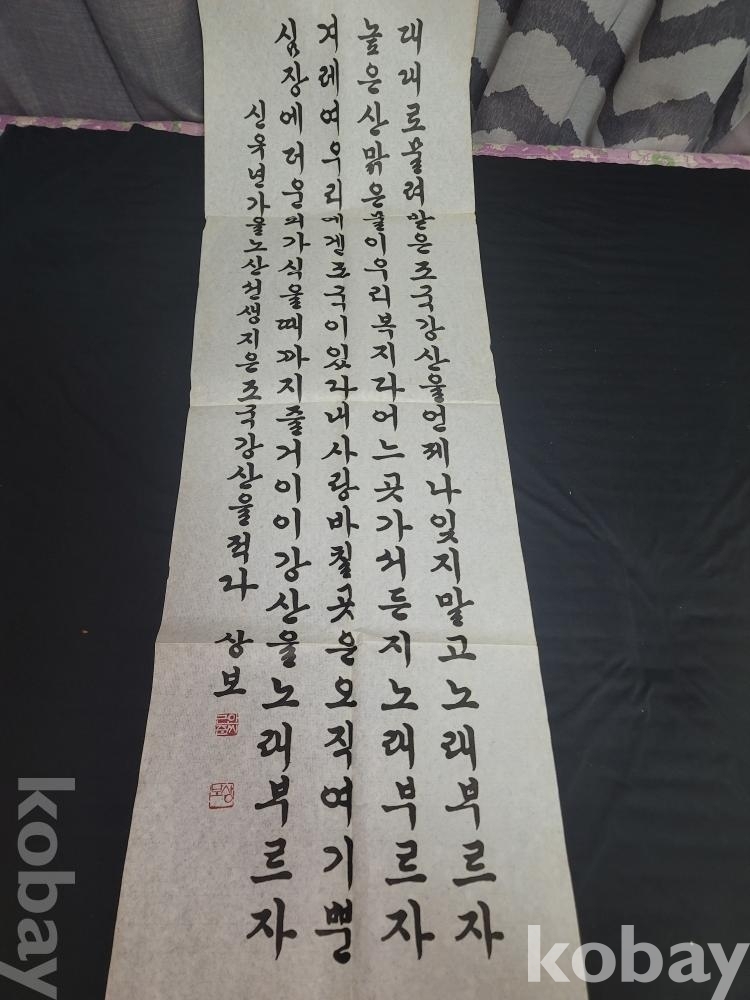 대대로물려받은조국강산을언제나잊지말고노래부르자
높은산맑은물이우리복지라어느곳가서든지노래부르자
겨레여우리에겐조국이있다내사랑바칠곳은오직여기뿐
심장에더운피가식을때까지즐거이이강산을노래부르자
신유년가을노산선생지은조국강산을적다 상보
상보
kobay
kobay